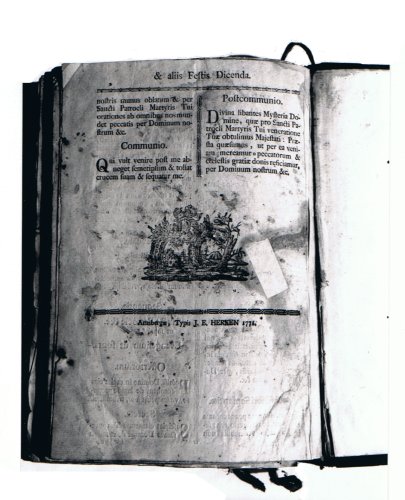 & aliis Festis Dicenda.
nostris munus oblatum & per
Sancti Patrocli Martyris Tui
orationes ab omnibus nos mun-
det peccatis per Dominum no-
strum &c.
Communio.
Qui vult venire post me ab-
neget semetipsum & tollat
crucem suam & sequatur me.
Postcommunio.
Divina libantes Mysteria Do-
mine, quæ pro Sancti Pa-
trocli Martyris Tui veneratione
Tuæ obtulimus Majestati: Præ-
sta quæsumus, ut per ea veniam
mereamur peccatorum &
cœlestis gratiæ donis reficiamur,
per Dominum nostrum &c.
Arnsbergæ, Typis J. E. HERKEN